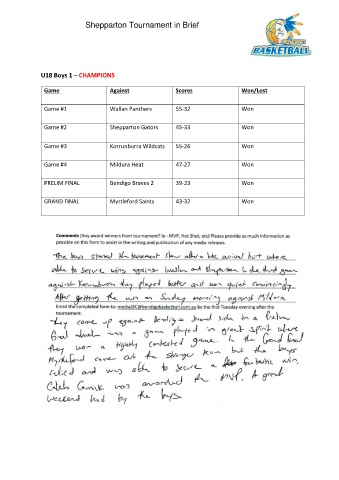 Shepparton Tournament in Brief
BASKETBALL
U18 Boys 1 – CHAMPIONS
Game Against Scores Won/Lost
Game #1 Wallan Panthers 55-32 Won
Game #2 Shepparton Gators 45-33 Won
Game #3 Korrunburra Wildcats 55-26 Won
Game #4 Mildura Heat 47-27 Won
PRELIM FINAL Bendigo Braves 2 39-23 Won
GRAND FINAL Myrtleford Saints 43-32 Won
Comments (Any award winners from tournament? Ie - MVP, Hot Shot, etc) Please provide as much information as
possible on this form to assist in the writing and publication of any media releases.
The boys started the tournament slow after a late arrival but where
able to secure wins against Wallan and Shepparton. In the third game
against Korrunburra they played better and won quiet convincingly.
After getting the win on Sunday morning against Mildura
Email the completed form to: media@bendigobasketball.com.au by the first Tuesday evening after the
tournament.
they came up against Bendigo second side in a Prelim
final which was a game played in great spirit where
they won a tightly contested game. In the Grand final
Myrtleford came out the stronger team but the boys
rallied and was able to secure a fantastic win.
Caleb was awarded the MVP. A great
weekend had by the boys